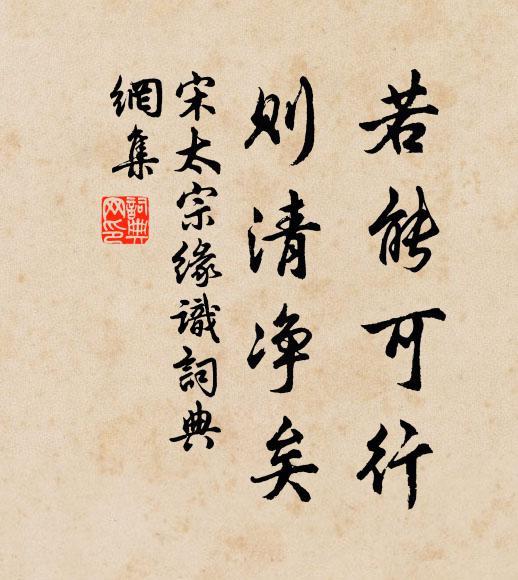 若能可行
则清净矣
宋太宗缘識詞典
網集
詞典
网印